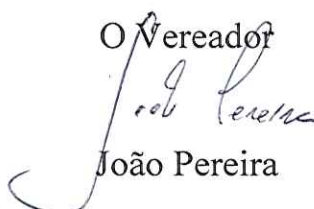 O Vereador
João Pereira
João Pereira